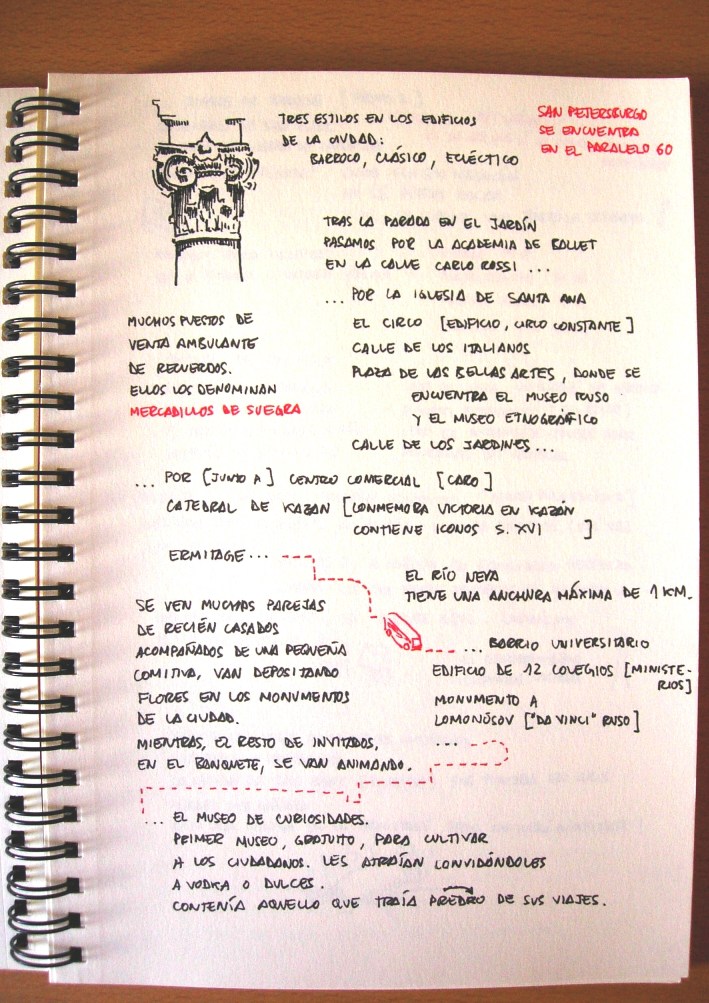 TRES ESTILOS EN LOS EDIFICIOS
DE LA CIUDAD:
BARROCO, CLÁSICO, ECLÉCTICO
SAN PETERSBURGO
SE ENCUENTRA
EN EL PARALELO 60
TRAS LA PARADA EN EL JARDÍN
PASAMOS POR LA ACADEMIA DE BALLET
EN LA CALLE CARLO ROSSI ...
... POR LA IGLESIA DE SANTA ANA
EL CIRCO [EDIFICIO, CIRCO CONSTANTE]
CALLE DE LOS ITALIANOS
PLAZA DE LAS BELLAS ARTES, DONDE SE
ENCUENTRA EL MUSEO RUSO
Y EL MUSEO ETNOGRÁFICO
CALLE DE LOS JARDINES...
MUCHOS PUESTOS DE
VENTA AMBULANTE
DE RECUERDOS.
ELLOS LOS DENOMINAN
MERCADILLOS DE SUEGRA
... POR [JUNTO A] CENTRO COMERCIAL [CARO]
CATEDRAL DE KAZAN [CONMEMORA VICTORIA EN KAZÁN
CONTIENE ICONOS S. XVI ]
ERMITAGE...
EL RÍO NEVA
TIENE UNA ANCHURA MÁXIMA DE 1 KM.
SE VEN MUCHAS PAREJAS
DE RECIÉN CASADOS
ACOMPAÑADOS DE UNA PEQUEÑA
COMITIVA, VAN DEPOSITANDO
FLORES EN LOS MONUMENTOS
DE LA CIUDAD.
MIENTRAS, EL RESTO DE INVITADOS,
EN EL BANQUETE, SE VAN ANIMANDO.
... BARRIO UNIVERSITARIO
EDIFICIO DE 12 COLEGIOS [MINISTE-
RIOS]
MONUMENTO A
LOMONÓSOV ["DA VINCI" RUSO]
...
... EL MUSEO DE CURIOSIDADES.
PRIMER MUSEO, GRATUITO, PARA CULTIVAR
A LOS CIUDADANOS. LES ATRAÍAN CONVIDÁNDOLES
A VODKA O DULCES.
CONTENÍA AQUELLO QUE TRAÍA PREDRO DE SUS VIAJES.